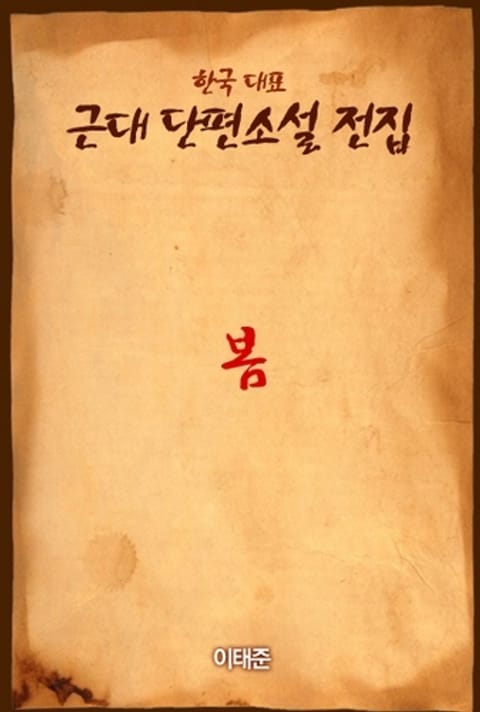 한국 대표
근대 단편소설 전집
봄
이태준